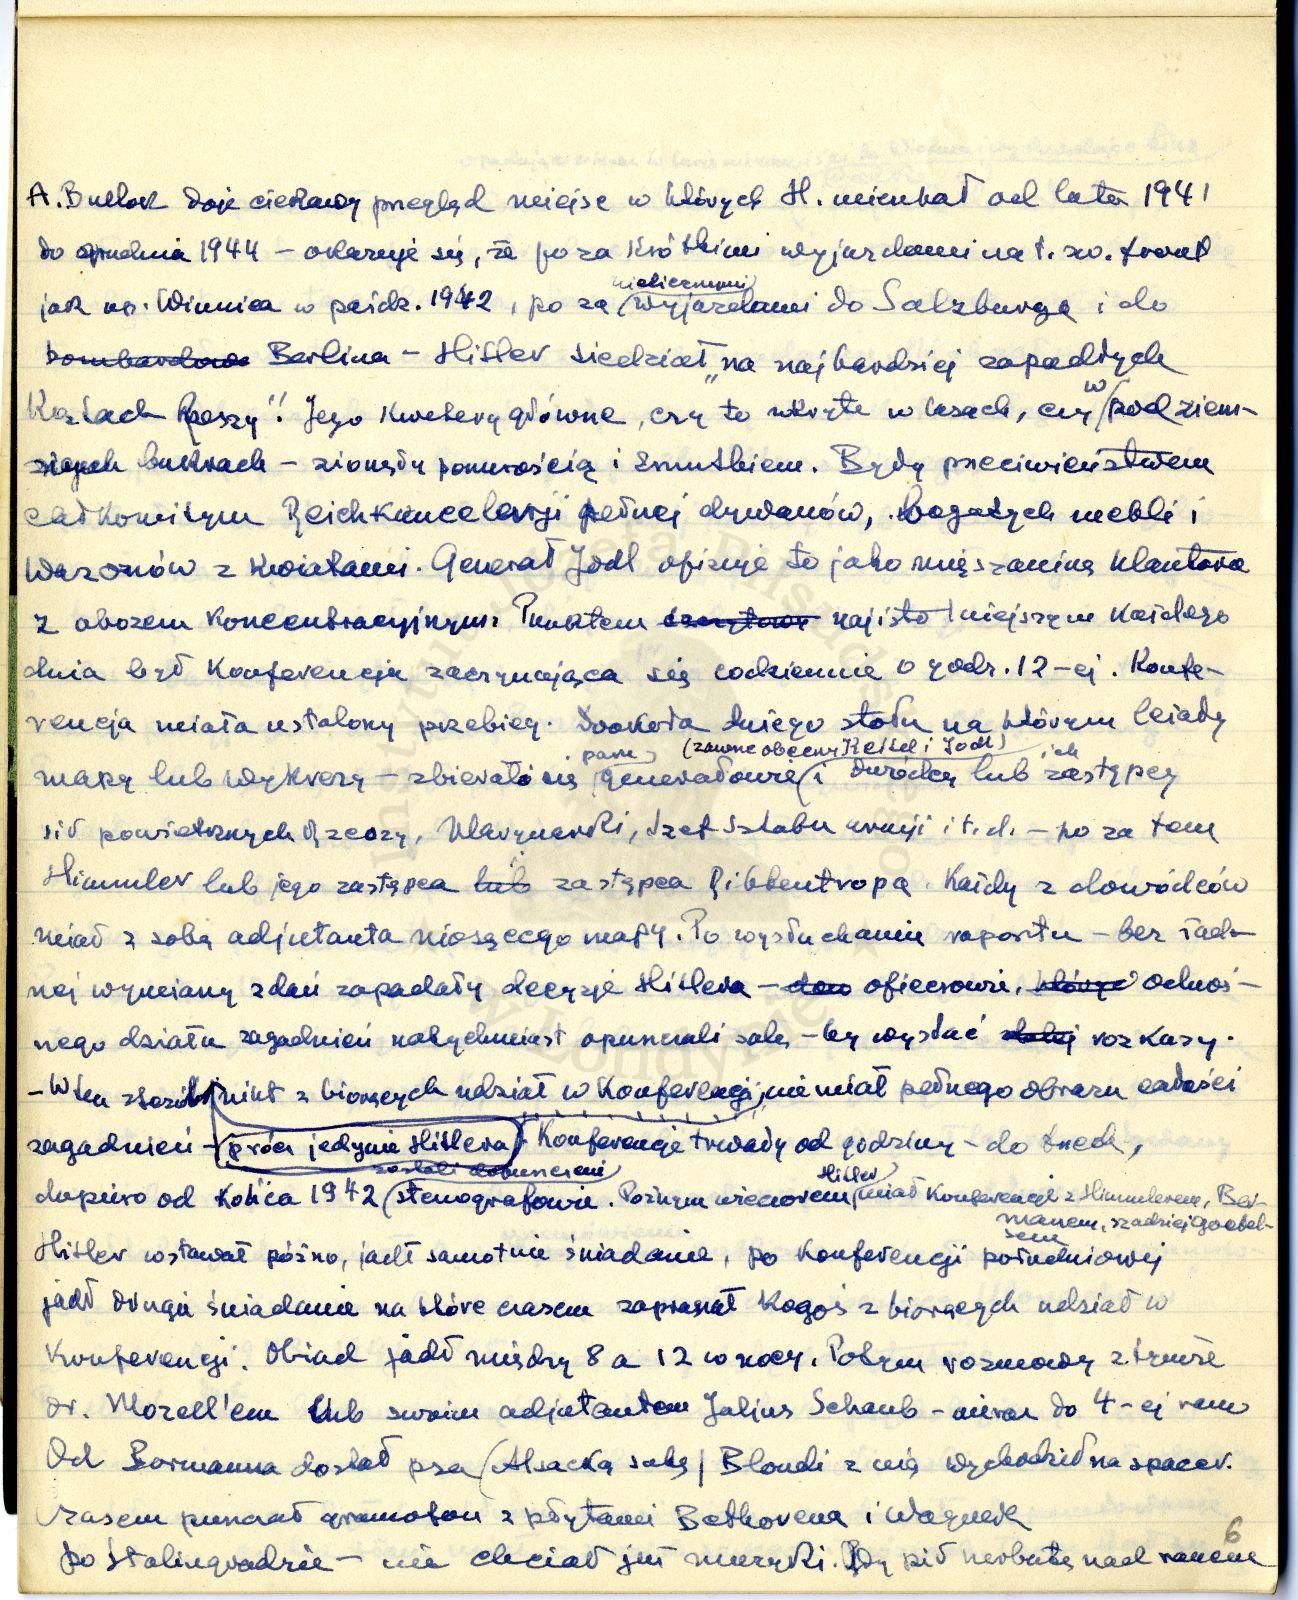 A. Bullock daje ciekawy przegląd miejsc w których H. mieszkał od lata 1941
do grudnia 1944 – okazuje się, że po za krótkimi wyjazdami na t. zw. front
jak np. Winnica w paźdz. 1942, po za nielicznymi wyjazdami do Salzburga i do
Berlina – Hitler siedział „na najbardziej zapadłych
Kątach Rzeszy". Jego kwatery główne, czy to ukryte w lasach, czy w podziem-
nych bunkrach – zionęły ponurością i smutkiem. Były przeciwieństwem
całkowitym Reichkancelerji pełnej dywanów, bogatych mebli i
wazonów z kwiatami. Generał Jodl opisuje to jako mięszaninę klasztoru
z obozem koncentracyjnym. Punktem najistotniejszym każdego
dnia był Konferencja zaczynająca się codziennie o godz. 12-ej. Konfe-
rencja miała ustalony przebieg. Dookoła dużego stołu na którym leżały
mapy lub wykresy – zbierało się paru generałowie (zawsze obecny Keitel i Jodl) i dowódcy lub ich zastępcy
sił powietrznych Rzeszy, Marynarki, szef sztabu armji i t.d. – po za tem
Himmler lub jego zastępca lub zastępca Ribbentropa. Każdy z dowódców
miał z sobą adjutanta niosącego mapy. Po wysłuchaniu raportu – bez żad-
nej wymiany zdań zapadały decyzje Hitlera – oficerowie, odnoś-
nego działu zagadnień natychmiast opuszczali salę – by wysłać rozkazy.
– W ten sposób nikt z biorących udział w Konferencji, nie miał pełnego obrazu całości
zagadnień – prócz jedynie Hitlera. Konferencje trwały od godziny – do trzech,
dopiero od końca 1942 zostali dopuszczeni stenografowie. Późnym wieczorem Hitler miał Konferencje z Himmlerem, Bor-
manem, rzadziej Goebel-
sem
Hitler wstawał późno, jadł samotnie śniadanie, po Konferencji południowej
jadł drugie śniadanie na które czasem zapraszał kogoś z biorących udział w
Konferencji. Obiad jadł między 8 a 12 w nocy. Potym rozmowy z
dr. Morell'em lub swoim adjutantem Juljus Schaub – nieraz do 4-ej rano
Od Bormanna dostał psa (Alsacką sukę) Blondi z nią wychodził na spacer.
Czasem puszczał gramofon z płytami Bethovena i Wagnera
po Stalingradzie – nie chciał już muzyki. Gdy pił herbatę nad ranem
6